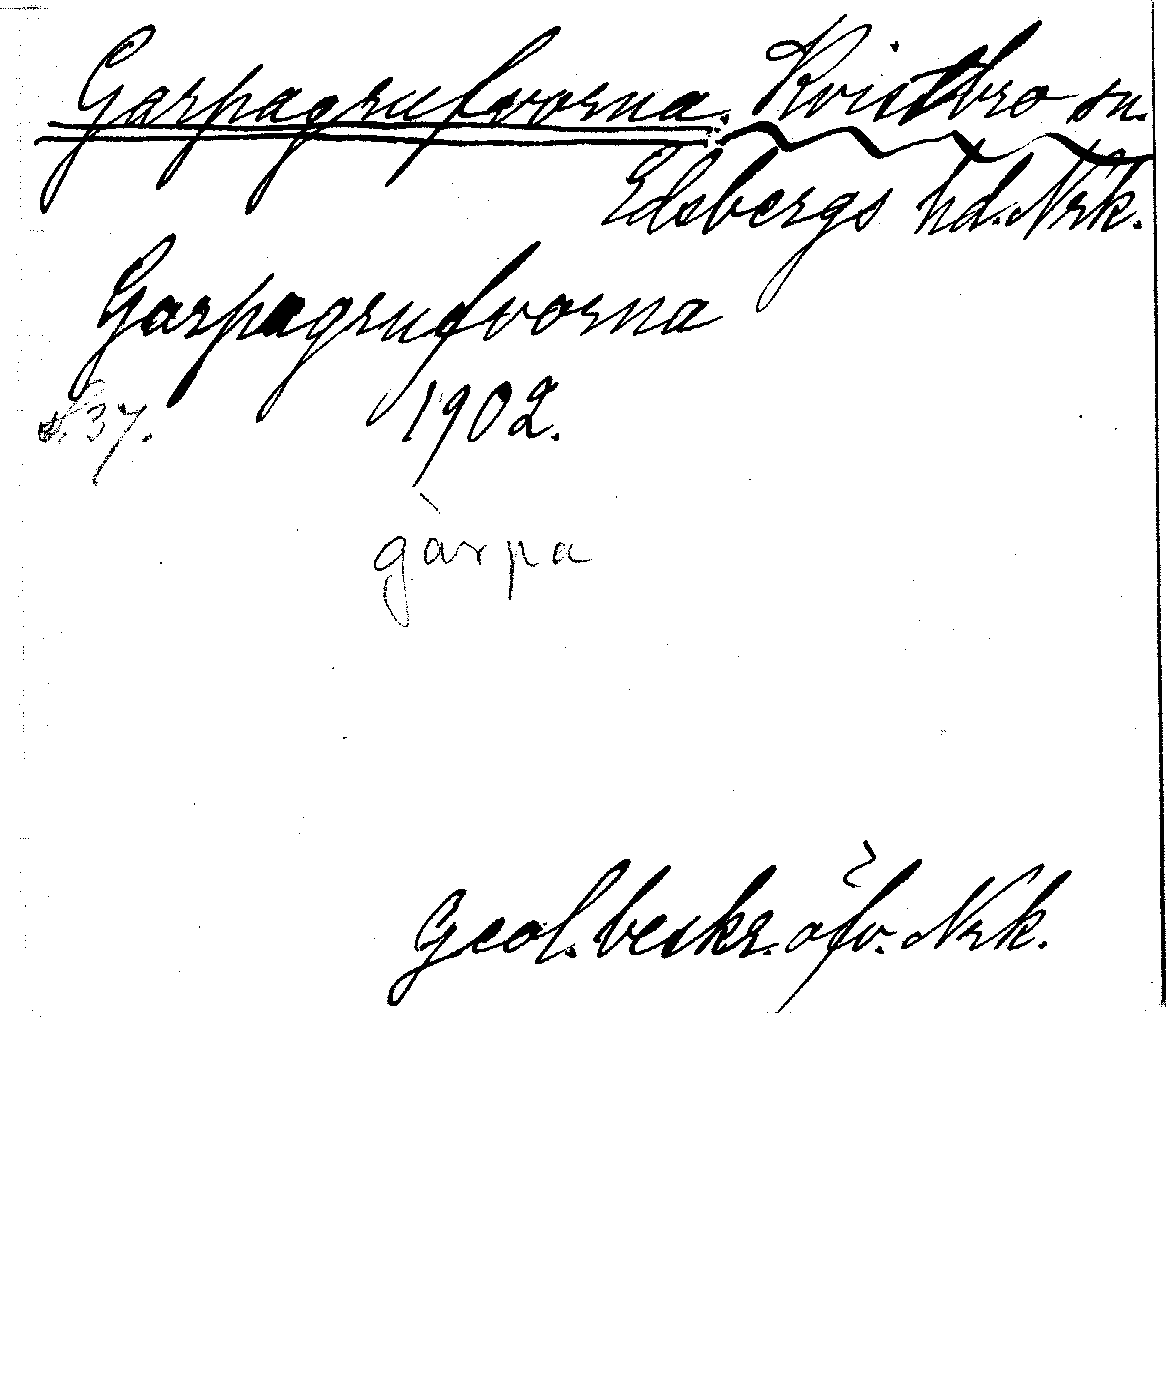 Garpagrufvorna. Kvistbro sn.
Edsbergs hd. Nrk.
Garpagrufvorna
S. 37. 1902.
gàrpa
Geol. beskr. öfv. Nrk.